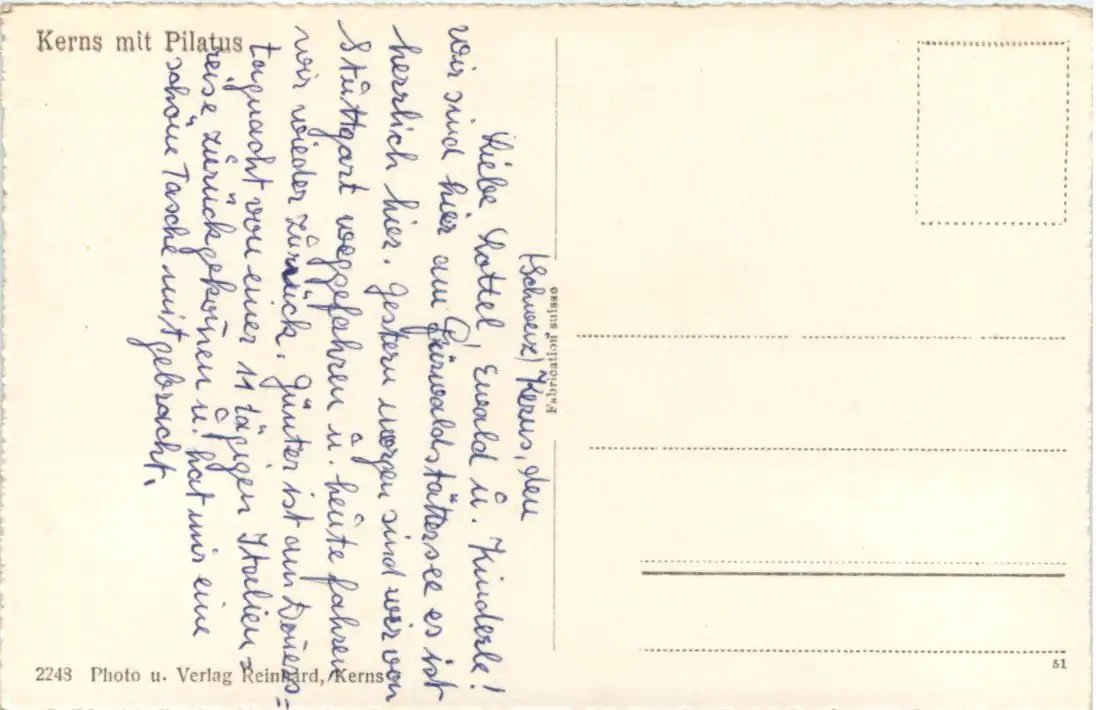 Kerns mit Pilatus
(Schweiz) Kerns, den
Liebe Lottel, Ewald u. Kinderle!
wir sind hier am Vierwaldstättersee es ist
herrlich hier. gestern morgen sind wir von
Stuttgart weggefahren u. heute fahren
wir wieder zurück. Günter ist am Doners=
tagnacht von einer 11 tägigen Italien=
reise zurückgekom̄en u. hat mir eine
schöne Tasche mitgebracht.
Fabrication suisse
2248 Photo u. Verlag Reinhard, Kerns
51